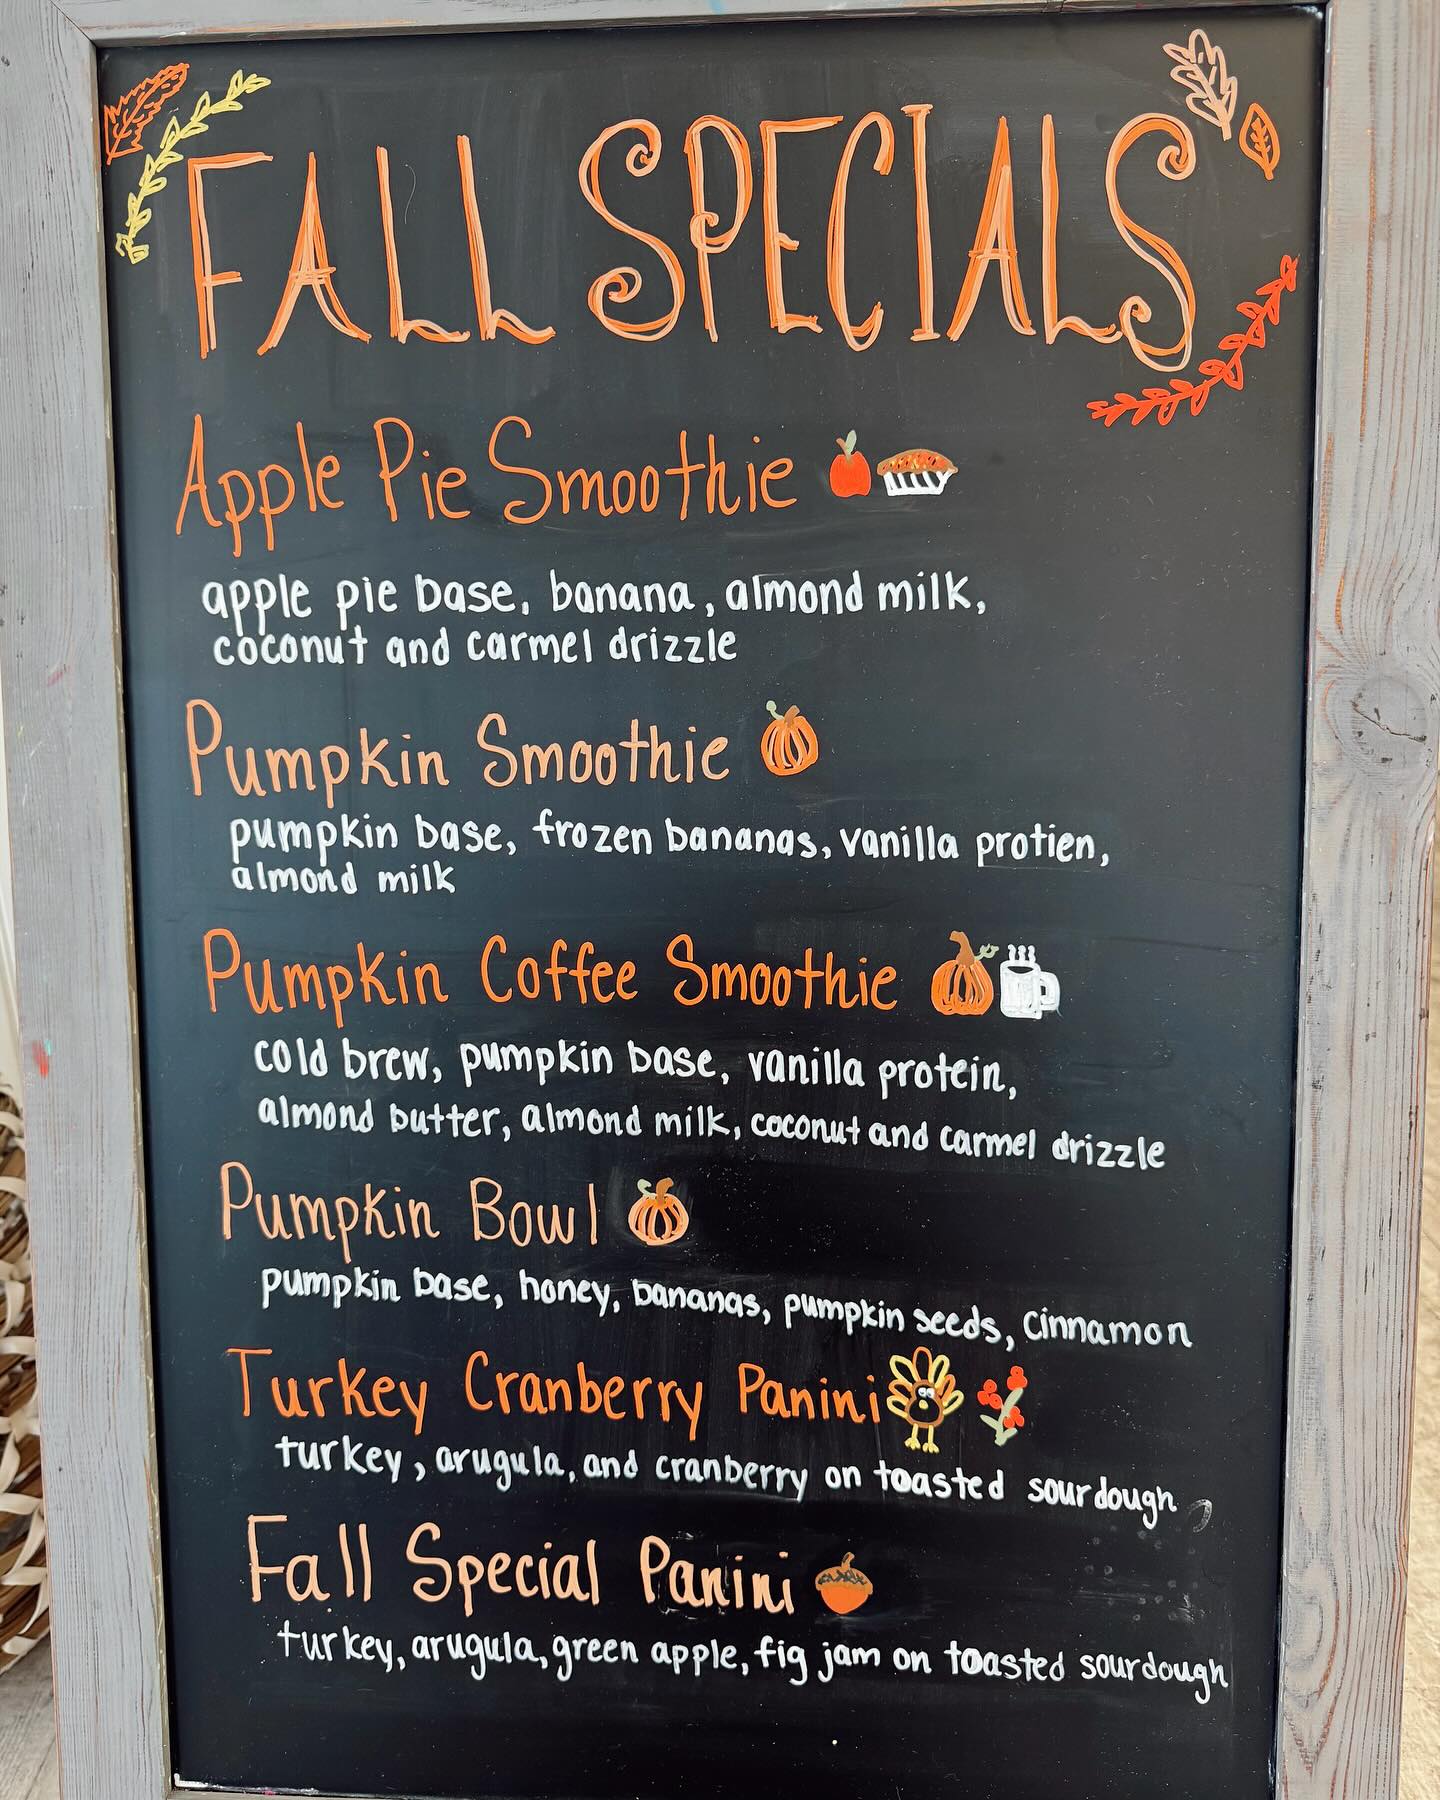 FALL SPECIALS
Apple Pie Smoothie
apple pie base, banana, almond milk,
coconut and carmel drizzle
Pumpkin Smoothie
pumpkin base, frozen bananas, vanilla protien,
almond milk
Pumpkin Coffee Smoothie
cold brew, pumpkin base, vanilla protein,
almond butter, almond milk, coconut and carmel drizzle
Pumpkin Bowl
pumpkin base, honey, bananas, pumpkin seeds, cinnamon
Turkey Cranberry Panini
turkey, arugula, and cranberry on toasted sourdough
Fall Special Panini
turkey, arugula, green apple, fig jam on toasted sourdough